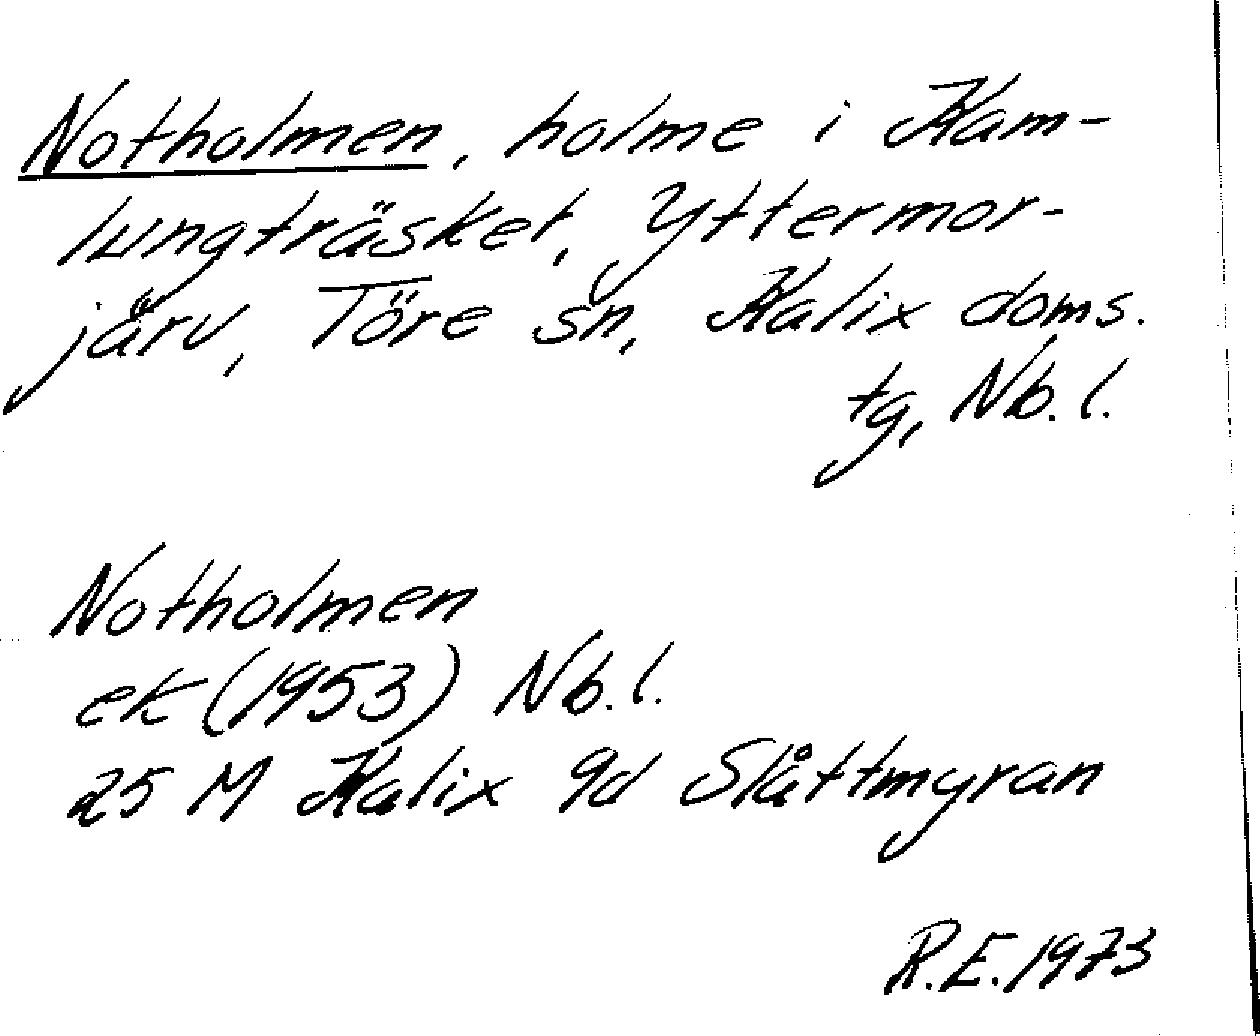 Notholmen, holme i Kam-
lungträsket, Yttermor-
järv, Töre sn, Kalix doms.
tg, Nb. l.
Notholmen
ek (1953) Nb. l.
25 M Kalix 9d Slåttmyran
R.E. 1973